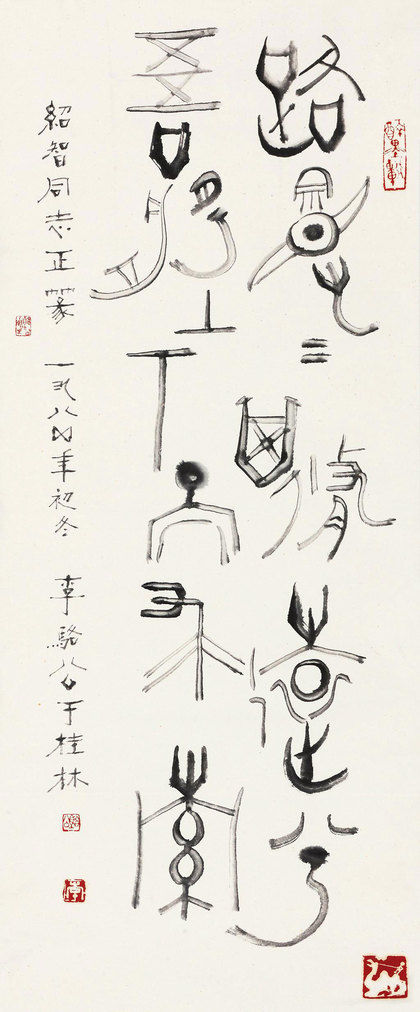 路曼〻其修遠兮
吾將上下而求索
紹智同志正篆 一九八四年初冬 李駱公于桂林